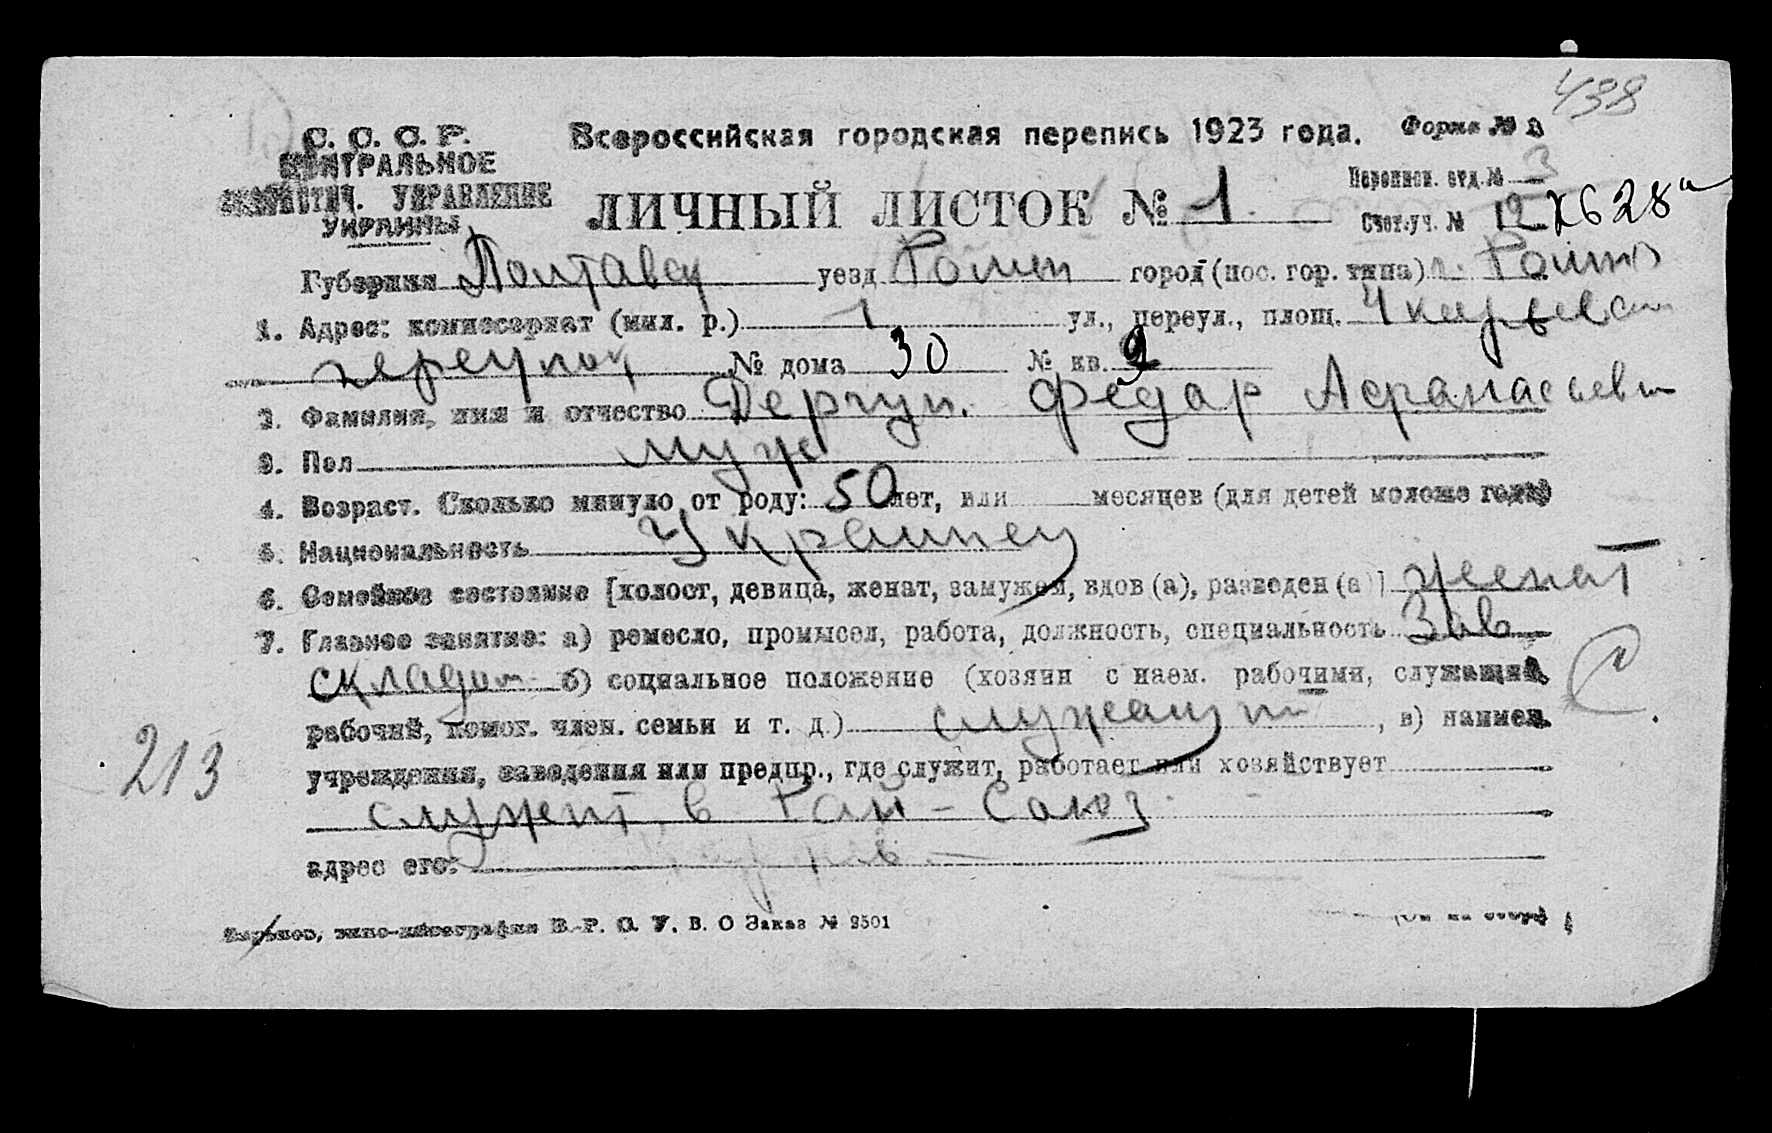 438
С. С. С. Р. Всероссийская городская перепись 1923 года. Форма № 3
ЦЕНТРАЛЬНОЕ
СТАТИСТИЧ. УПРАВЛЕНИЕ
УКРАИНЫ
ЛИЧНЫЙ ЛИСТОК № 1.
Переписн. отд. № 3
Счет.уч. № 12
Губерния Полтавск уезд Ромен город (пос. гор. типа) г. Ромны
1. Адрес: комиссариат (мил. р.) 1 ул., переул., площ.
переулок № дома 30 № кв. 9
2. Фамилия, имя и отчество Федар Афранасьевич
3. Пол муж
4. Возраст. Сколько минуло от роду: 50 лет, или месяцев (для детей моложе года)
5. Национальность Украинец
6. Семейное состояние [холост, девица, женат, замужем, вдов (а), разведен (а)] женат
7. Главное занятие: а) ремесло, промысел, работа, должность, специальность Зав
складом б) социальное положение (хозяин с наем. рабочими, служащий,
рабочий, помог. член. семьи и т. д.) служащий, в) наимен.
213
учреждения, заведения или предпр., где служит, работает или хозяйствует
служит в Рай-Союз
адрес его:
Харьков, типо-литография В.-Р. С. У. В. О Заказ № 2501